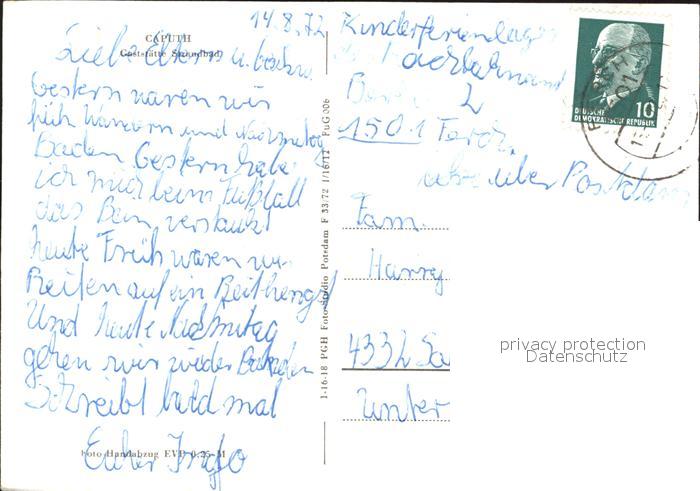 14.8.72
CAPUTH
Gaststätte Strandbad
Liebe Eltern u.
Gestern waren wir
früh Wandern und Nachmitag
Baden Gestern habe
ich mich beim Fußball
das Bein verstaucht
heute Früh waren wir
Reiten auf ein Reithengst
Und heute Nachmitag
gehen wir wieder Baden
Schreibt bald mal
Euer Ingo
Foto Handabzug EVP 0,25 M
1-16-18 PGH Foto-Studio Potsdam F 33/72 1/16/17 FuG 806
Kinderferienlager
2
1501 Ferch
über Potsdam
Fam.
Harry
4332
Unter
DEUTSCHE
DEMOKRATISCHE REPUBLIK
10
privacy protection
Datenschutz